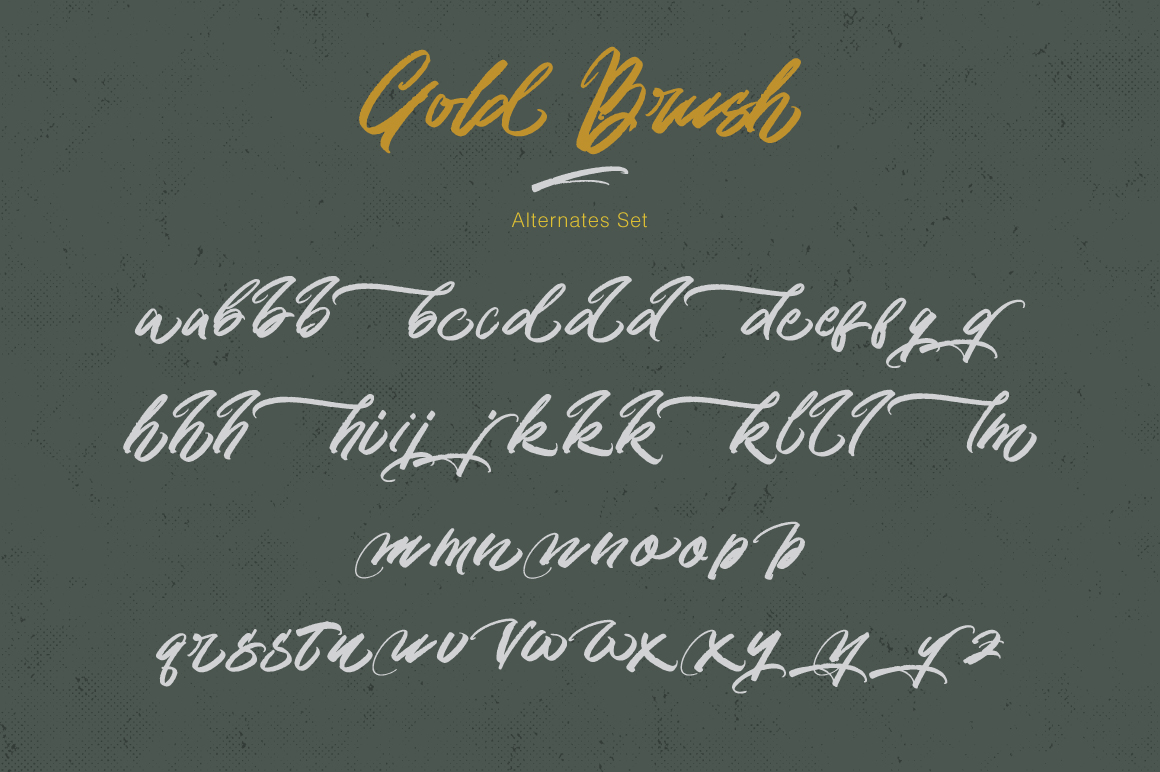 Gold Brush
Alternates Set
aabbbbcccddddeeeffgg
hhhhiiijjkkkkllllm
mmnnnooopp
qrssstuuvvwwxxyyyz